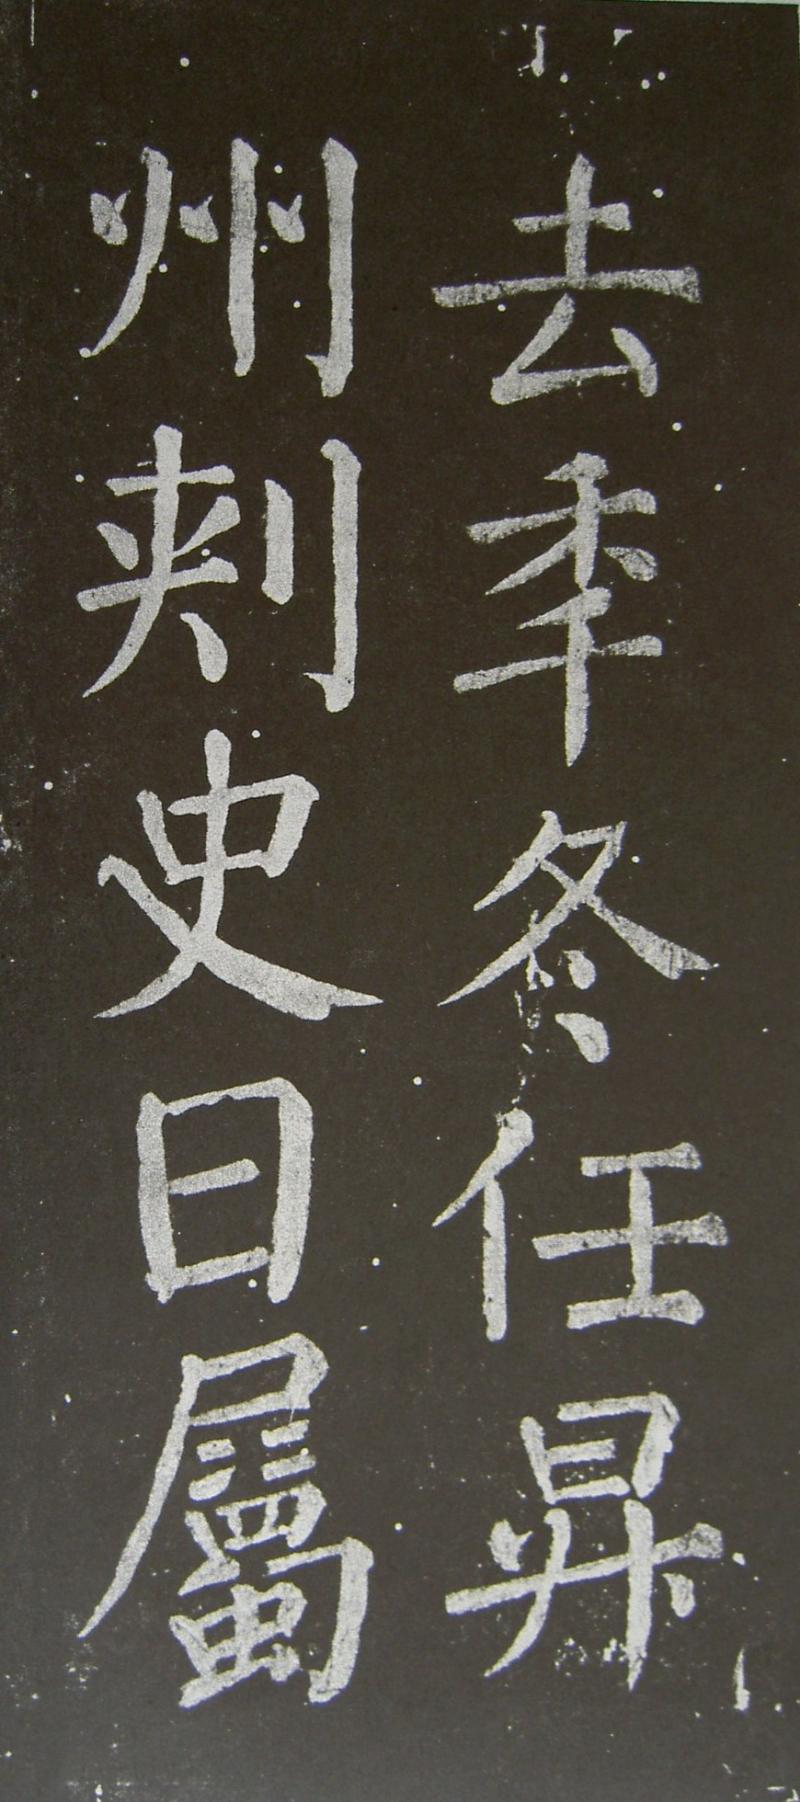 去秊冬任昇
州刺史日屬